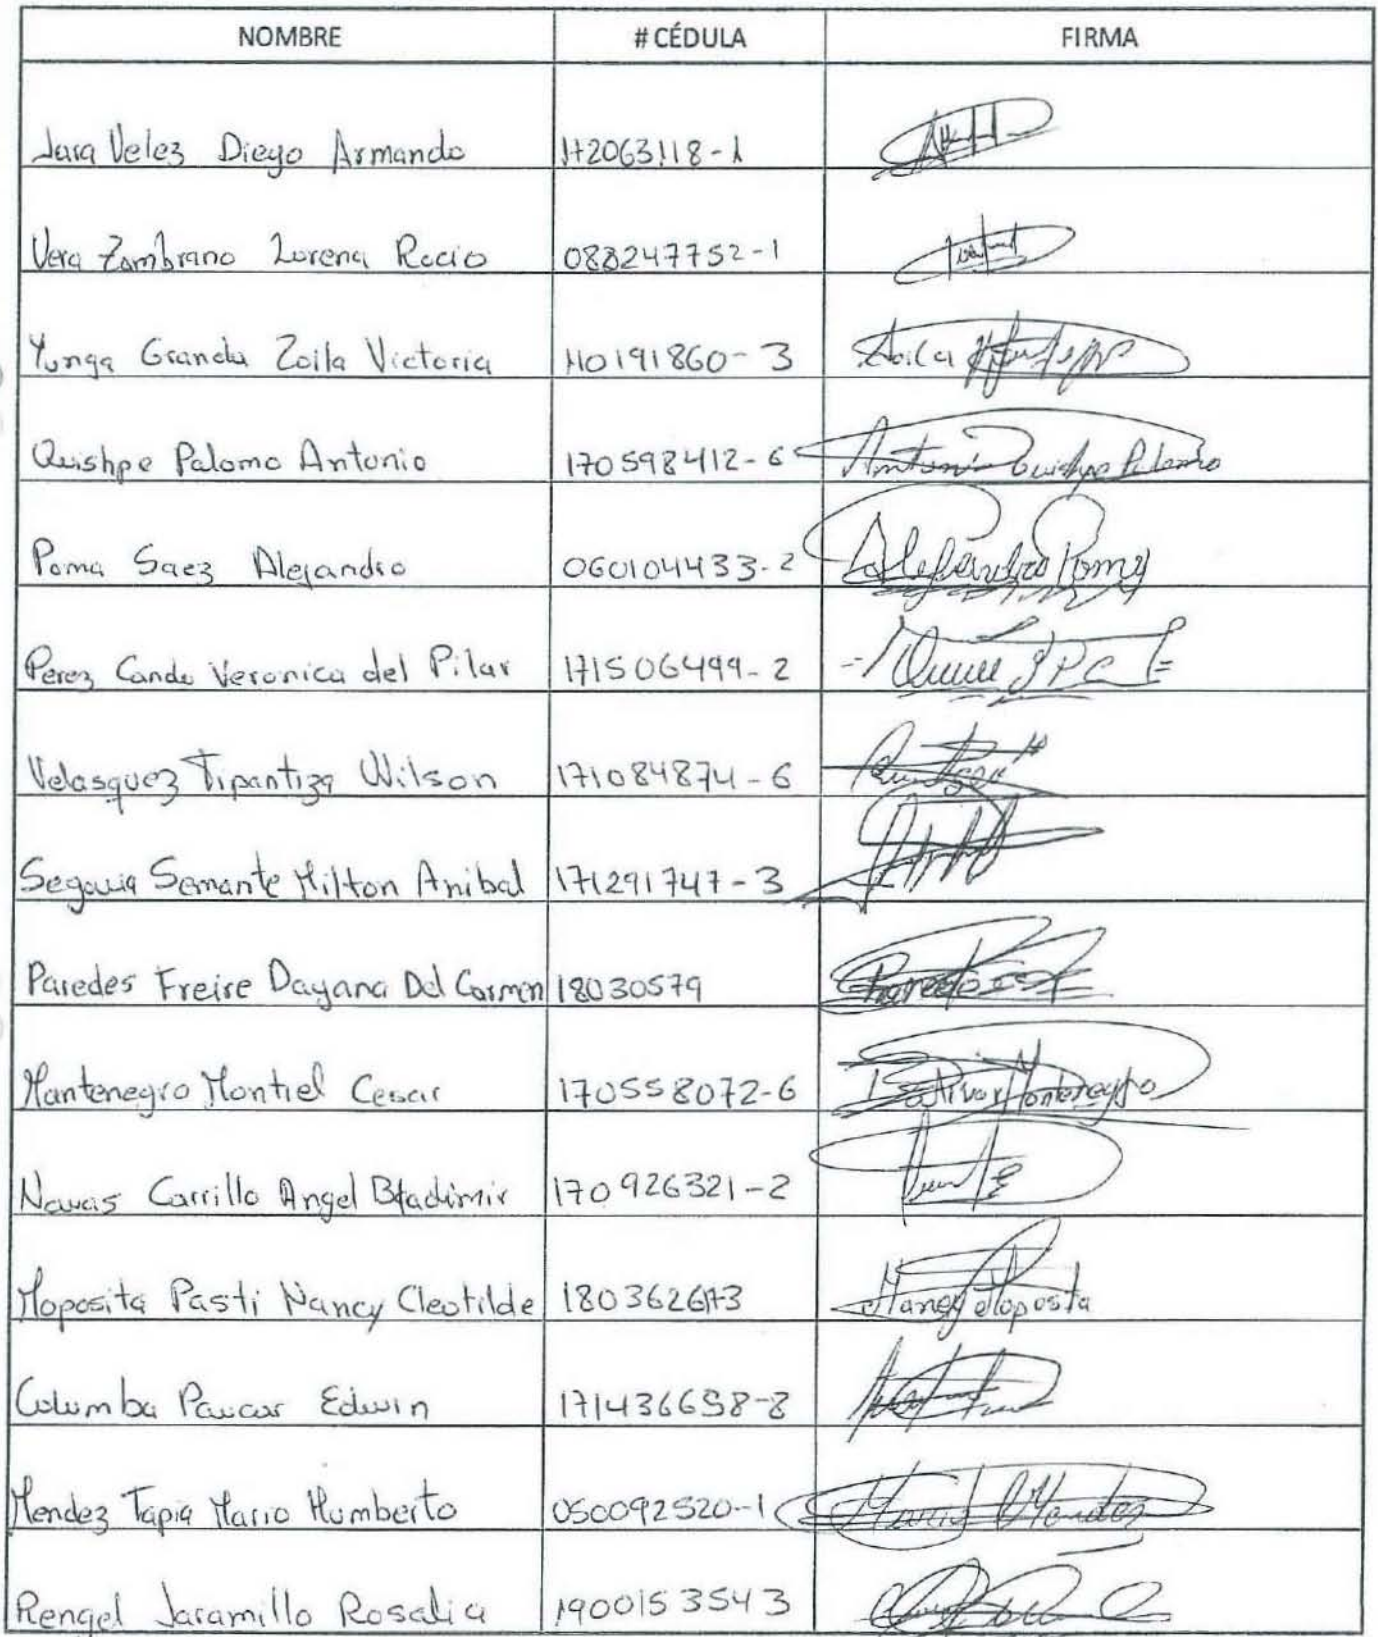 NOMBRE # CÉDULA FIRMA
Jara Velez Diego Armando 172063118-1
Vera Zambrano Lorena Rocio 088247752-1
Yunga Granda Zoila Victoria 110191860-3 Zoila
Quishpe Palomo Antonio 170598412-6 Antonio Quishpe Palomo
Poma Saez Alejandro 060104433-2 Alejandro Poma
Perez Cando Veronica del Pilar 171506499-2
Velasquez Tipantiza Wilson 171084874-6
Segovia Semante Milton Anibal 171291747-3
Paredes Freire Dayana Del Carmen 18030579 Paredes
Mantenegro Montiel Cesar 170558072-6 Montenegro
Navas Carrillo Angel Bladimir 170926321-2
Moposita Pasti Nancy Cleotilde 180362673 Nancy Moposta
Columba Paucar Edwin 171436658-8
Mendez Tapia Mario Humberto 050092520-1 Mario Mendez
Rengel Jaramillo Rosalia 1900153543